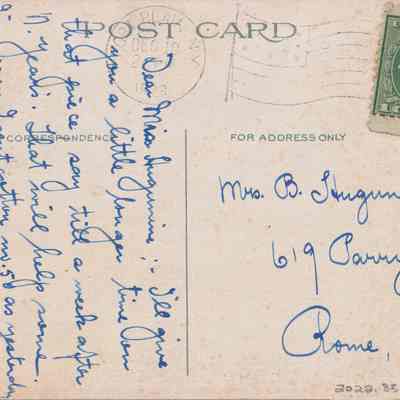 POST CARD
DEC 30
CORRESPONDENCE
FOR ADDRESS ONLY
Dear Miss Hugunine :- I'll give
you a little longer time on
that piece say till a week after
N. years. That will help some.
as yesterday
Mrs. B. Hugun
619 Parry
Rome,
2022.35